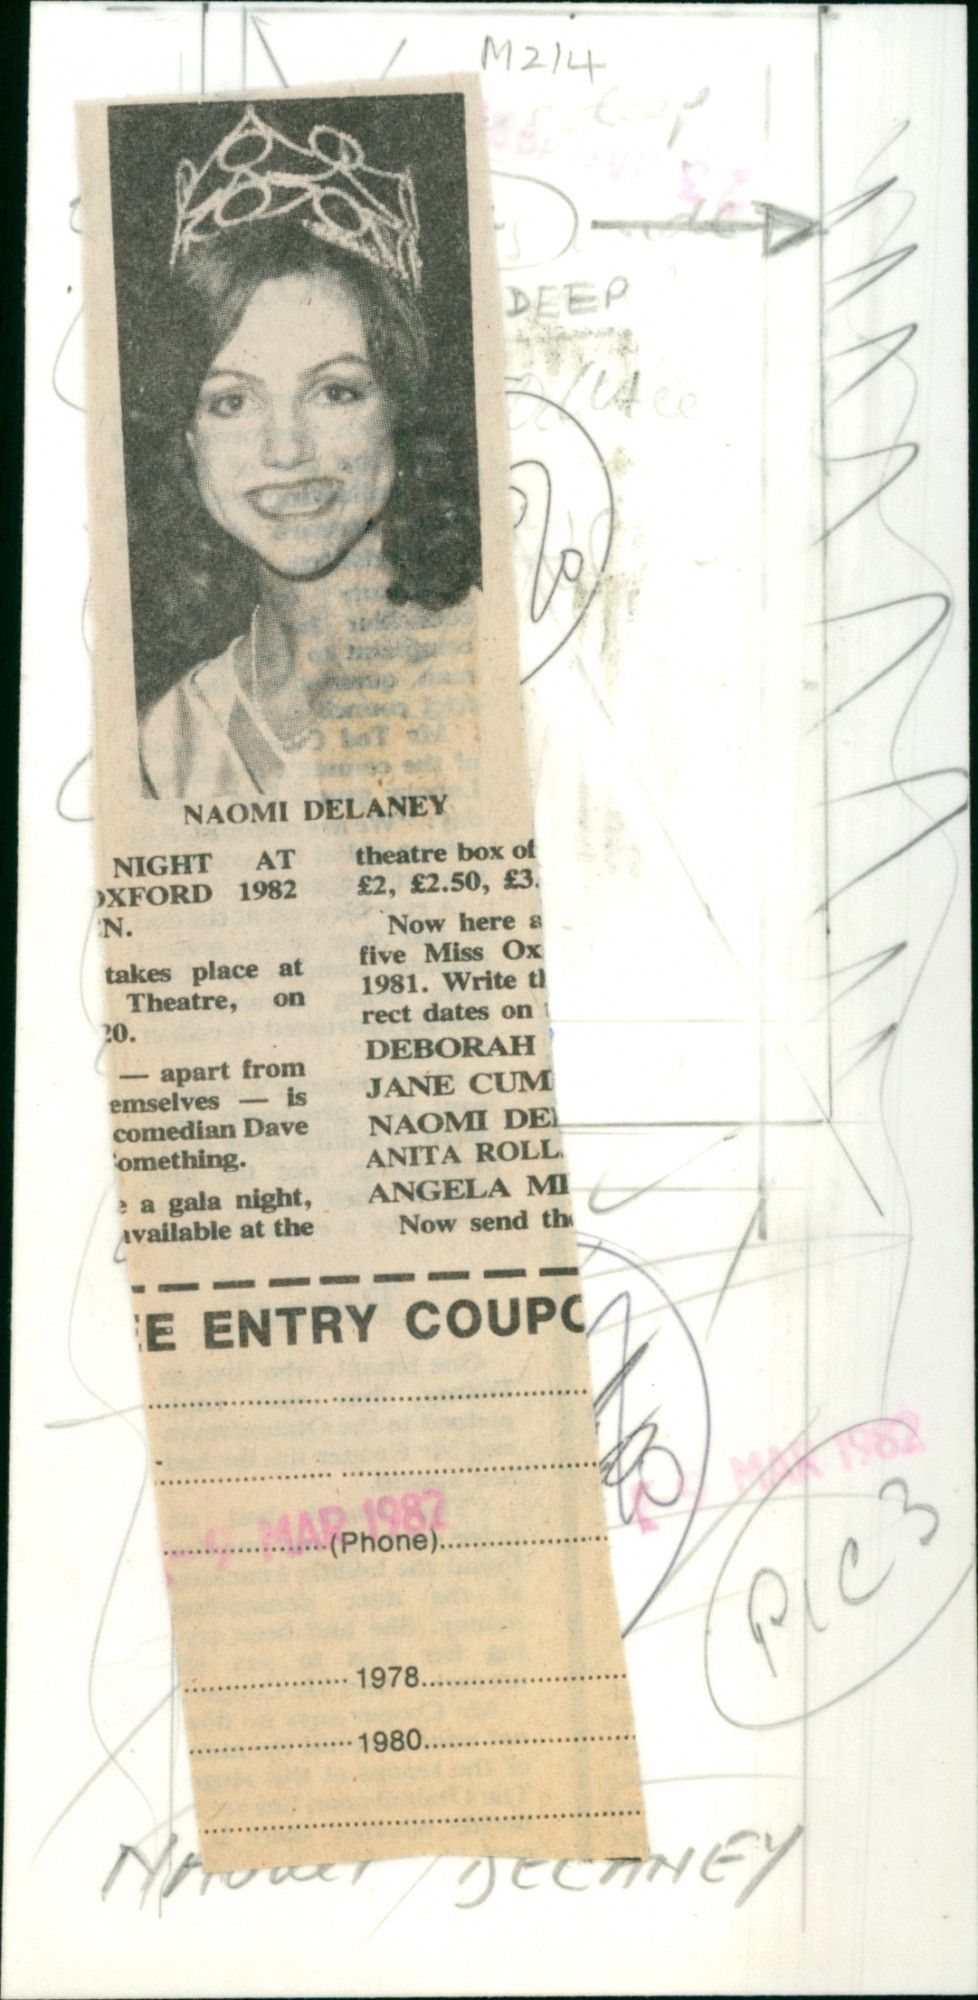 M214
DEEP
NAOMI DELANEY
NIGHT AT
OXFORD 1982
N.
takes place at
Theatre, on
20.
— apart from
emselves — is
comedian Dave
omething.
e a gala night,
available at the
theatre box of
£2, £2.50, £3.
Now here a
five Miss Ox
1981. Write th
rect dates on
DEBORAH
JANE CUM
NAOMI DE
ANITA ROLL
ANGELA MI
Now send the
EE ENTRY COUPO
9 MAR 1982
(Phone)
9 MAR 1982
PIC 3
1978
1980
NAOMI DELANEY